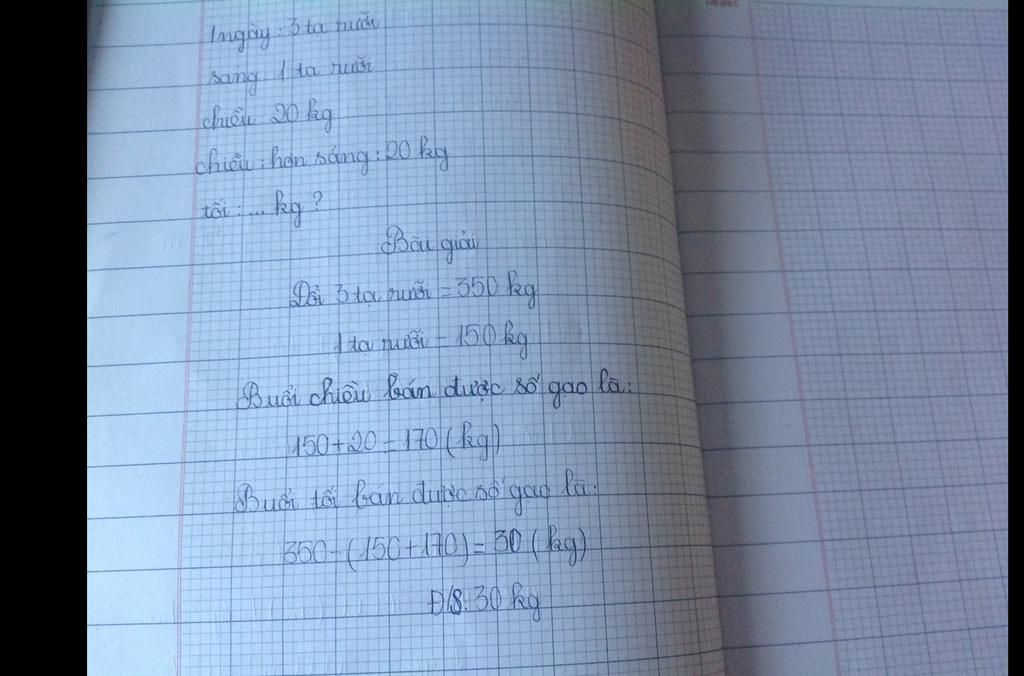 1 ngày: 3 tạ rưỡi
sáng 1 tạ rưỡi
chiều 20 kg
chiều: hơn sáng: 20 kg
tối: ... kg?
Bài giải
Đổi 3 tạ rưỡi = 350 kg
1 tạ rưỡi = 150 kg
Buổi chiều bán được số gạo là:
150 + 20 = 170 (kg)
Buổi tối bán được số gạo là:
350 - (150 + 170) = 30 (kg)
Đ/S: 30 kg